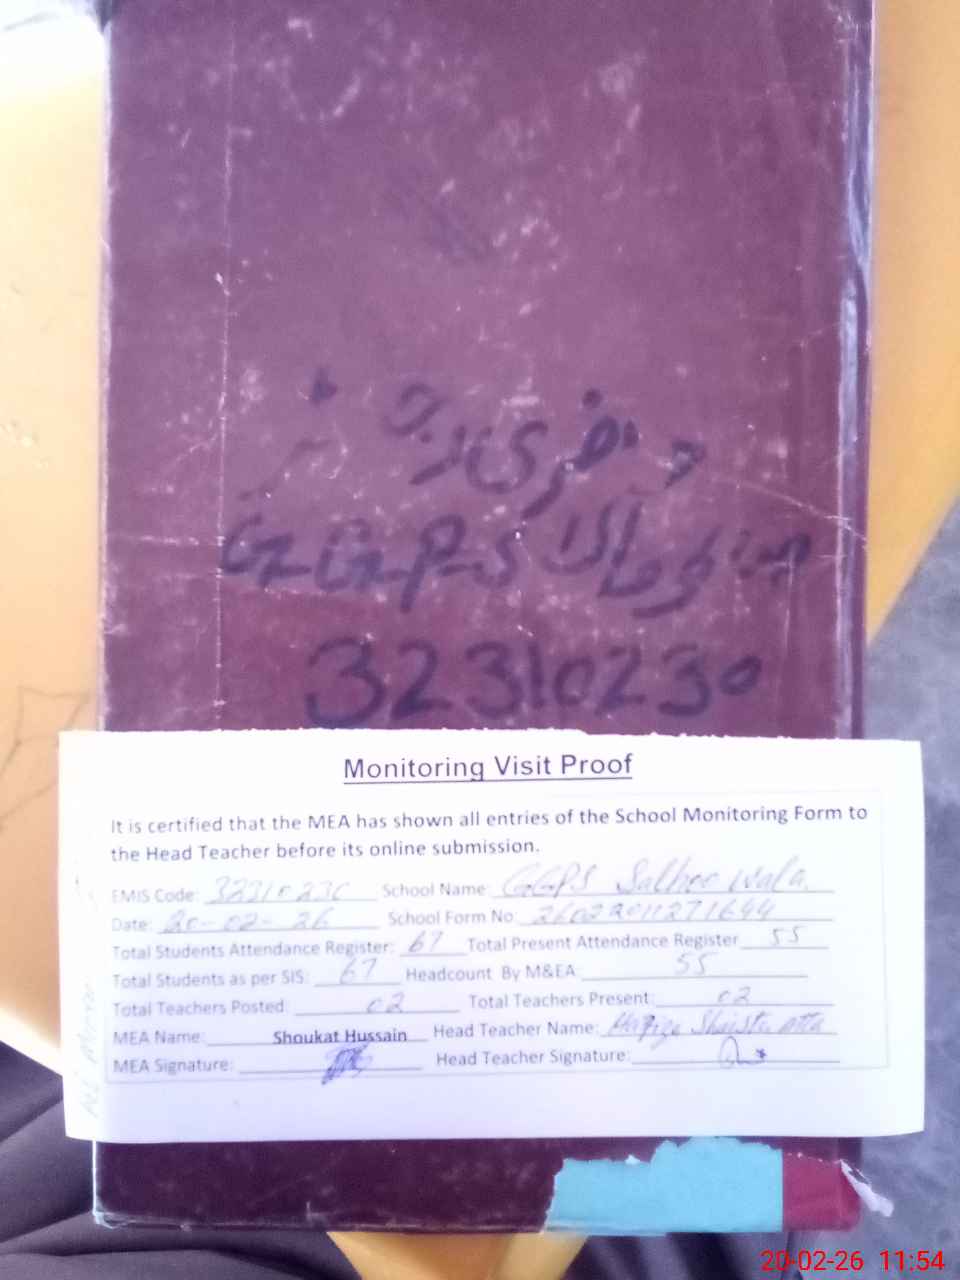 GGPS
32310230
Monitoring Visit Proof
It is certified that the MEA has shown all entries of the School Monitoring Form to
the Head Teacher before its online submission.
EMIS Code: 32310230 School Name: GGPS Salhee wala
Date: 20-02-26 School Form No: 26022011271644
Total Students Attendance Register: 67 Total Present Attendance Register 55
Total Students as per SIS: 67 Headcount By M&EA 55
Total Teachers Posted: 02 Total Teachers Present: 02
MEA Name: Shoukat Hussain Head Teacher Name:
MEA Signature: Head Teacher Signature:
20-02-26 11:54